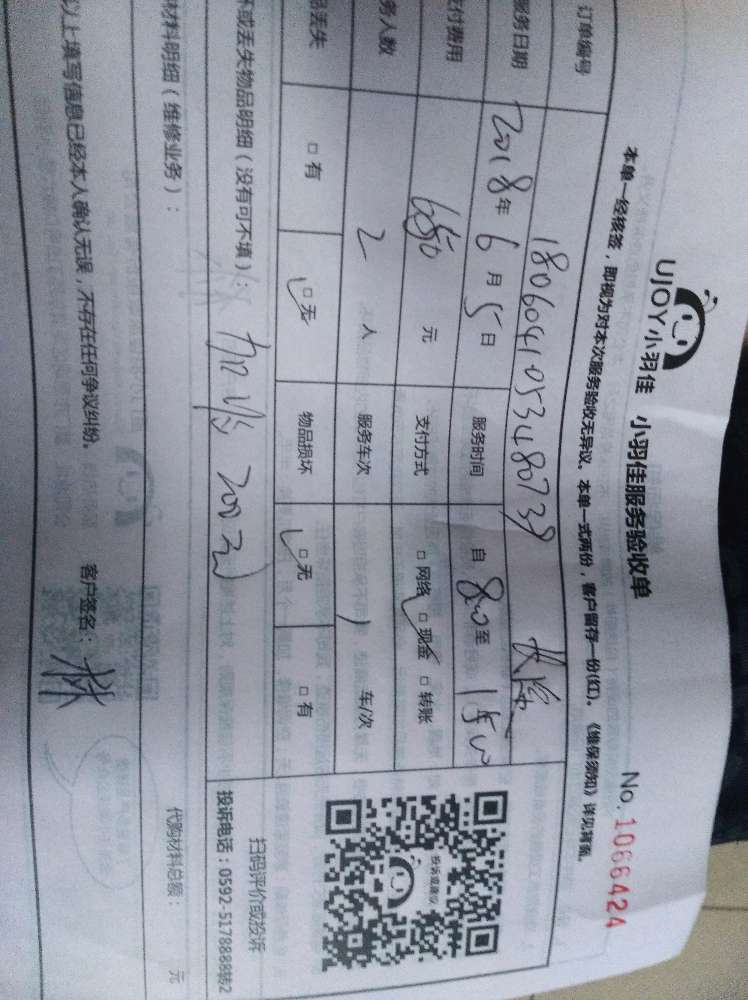 UJOY小羽佳 小羽佳服务验收单 No. 1066424
本单一经核签，即视为对本次服务验收无异议。本单一式两份，客户留存一份(红)。《维保须知》详见背面。
订单编号 180604105348073
服务日期 2018年6月5日 服务时间 自 8:00至
付费用 680元 支付方式 □网络 □现金 □转账
务人数 2人 服务车次 1 车/次
品丢失 □有 □无 物品损坏 □无 □有
坏或丢失物品明细（没有可不填）： 200元
材料明细（维修业务）： 代购材料总额： 元
以上填写信息已经本人确认无误，不存在任何争议纠纷。 客户签名： 林
投诉或建议
扫码评价或投诉
投诉电话：0592-5178888转2